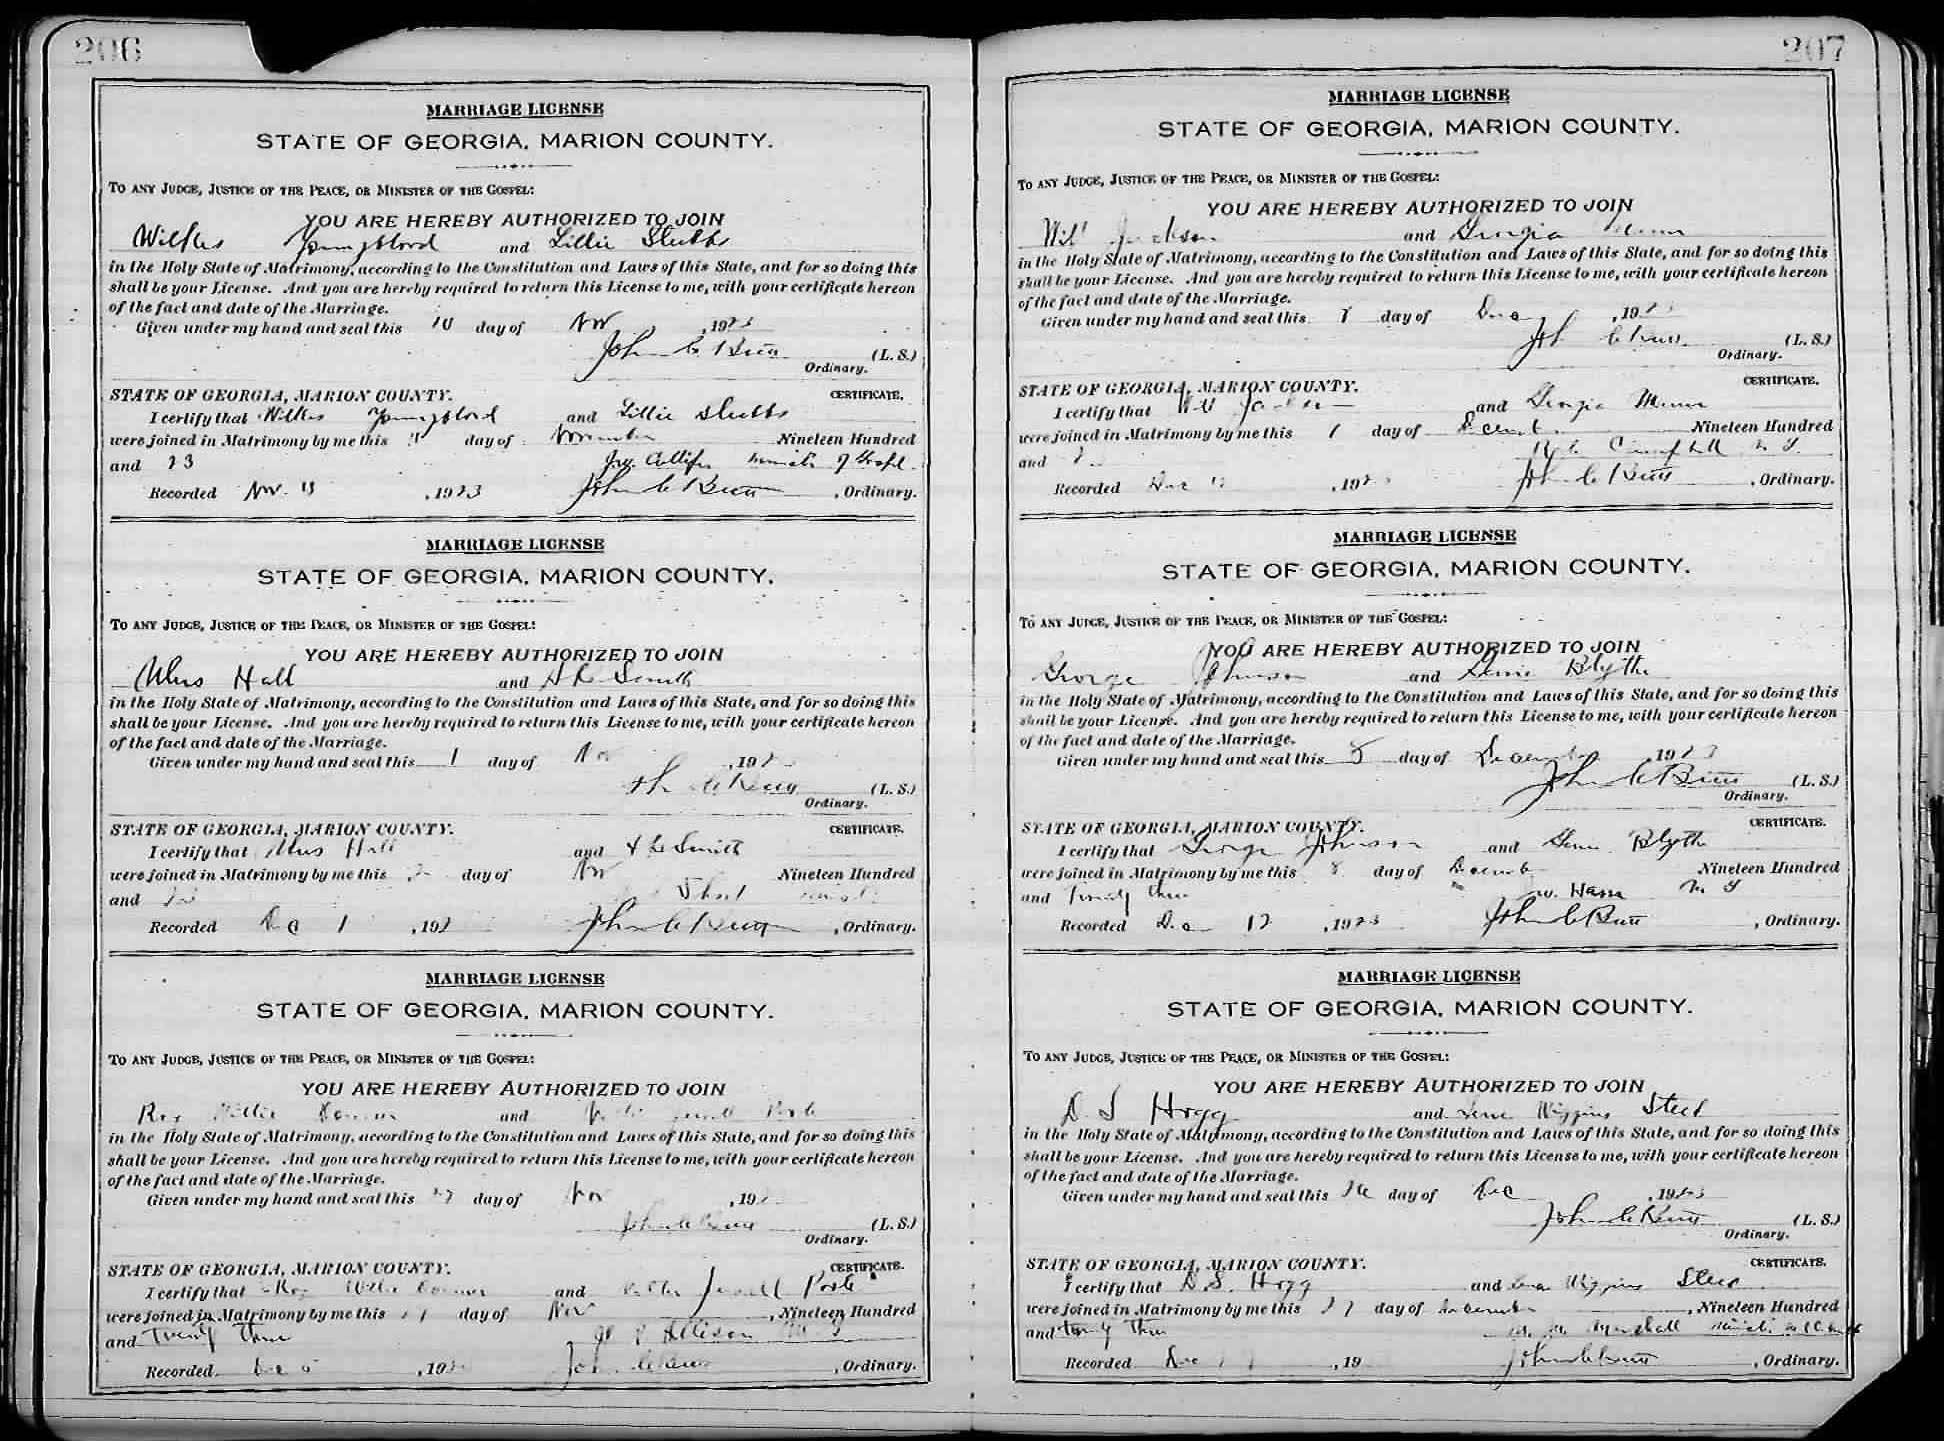 206
MARRIAGE LICENSE
STATE OF GEORGIA, MARION COUNTY.
TO ANY JUDGE, JUSTICE OF THE PEACE, OR MINISTER OF THE GOSPEL:
YOU ARE HEREBY AUTHORIZED TO JOIN
Wilkes Youngblood and Lillie Stubbs
in the Holy State of Matrimony, according to the Constitution and Laws of this State, and for so doing this
shall be your License. And you are hereby required to return this License to me, with your certificate hereon
of the fact and date of the Marriage.
Given under my hand and seal this 10 day of Nov, 1923
John C Butt (L. S.)
Ordinary.
STATE OF GEORGIA, MARION COUNTY. CERTIFICATE.
I certify that Wilkes Youngblood and Lillie Stubbs
were joined in Matrimony by me this 11 day of November Nineteen Hundred
and 23
Recorded Nov. , 1923 John C Butt, Ordinary.
MARRIAGE LICENSE
STATE OF GEORGIA, MARION COUNTY.
TO ANY JUDGE, JUSTICE OF THE PEACE, OR MINISTER OF THE GOSPEL:
YOU ARE HEREBY AUTHORIZED TO JOIN
Hall and Smith
in the Holy State of Matrimony, according to the Constitution and Laws of this State, and for so doing this
shall be your License. And you are hereby required to return this License to me, with your certificate hereon
of the fact and date of the Marriage.
Given under my hand and seal this 1 day of Nov, 192
(L. S.)
Ordinary.
STATE OF GEORGIA, MARION COUNTY. CERTIFICATE.
I certify that Hall and Smith
were joined in Matrimony by me this day of Nov Nineteen Hundred
and
Recorded Dec 1, 192 John C Butt, Ordinary.
MARRIAGE LICENSE
STATE OF GEORGIA, MARION COUNTY.
TO ANY JUDGE, JUSTICE OF THE PEACE, OR MINISTER OF THE GOSPEL:
YOU ARE HEREBY AUTHORIZED TO JOIN
Roy Willie and Jewell
in the Holy State of Matrimony, according to the Constitution and Laws of this State, and for so doing this
shall be your License. And you are hereby required to return this License to me, with your certificate hereon
of the fact and date of the Marriage.
Given under my hand and seal this day of Nov, 192
John C Butt (L. S.)
Ordinary.
STATE OF GEORGIA, MARION COUNTY. CERTIFICATE.
I certify that Roy Willie and Jewell
were joined in Matrimony by me this day of Nov, Nineteen Hundred
and Twenty three Allison M G
Recorded Dec 5, 192 John C Butt, Ordinary.
207
MARRIAGE LICENSE
STATE OF GEORGIA, MARION COUNTY.
TO ANY JUDGE, JUSTICE OF THE PEACE, OR MINISTER OF THE GOSPEL:
YOU ARE HEREBY AUTHORIZED TO JOIN
Will Jackson and Georgia
in the Holy State of Matrimony, according to the Constitution and Laws of this State, and for so doing this
shall be your License. And you are hereby required to return this License to me, with your certificate hereon
of the fact and date of the Marriage.
Given under my hand and seal this 8 day of Dec, 192
C Butt (L. S.)
Ordinary.
STATE OF GEORGIA, MARION COUNTY. CERTIFICATE.
I certify that Will Jackson and Georgia
were joined in Matrimony by me this day of Nineteen Hundred
and Campbell M G
Recorded Dec 12, 192 John C Butt, Ordinary.
MARRIAGE LICENSE
STATE OF GEORGIA, MARION COUNTY.
TO ANY JUDGE, JUSTICE OF THE PEACE, OR MINISTER OF THE GOSPEL:
YOU ARE HEREBY AUTHORIZED TO JOIN
George Johnson and Blythe
in the Holy State of Matrimony, according to the Constitution and Laws of this State, and for so doing this
shall be your License. And you are hereby required to return this License to me, with your certificate hereon
of the fact and date of the Marriage.
Given under my hand and seal this 8 day of December, 1923
John C Butt (L. S.)
Ordinary.
STATE OF GEORGIA, MARION COUNTY. CERTIFICATE.
I certify that George Johnson and Blythe
were joined in Matrimony by me this 8 day of December Nineteen Hundred
and Twenty three M G
Recorded Dec 12, 1923 John C Butt, Ordinary.
MARRIAGE LICENSE
STATE OF GEORGIA, MARION COUNTY.
TO ANY JUDGE, JUSTICE OF THE PEACE, OR MINISTER OF THE GOSPEL:
YOU ARE HEREBY AUTHORIZED TO JOIN
D. S. Hogg and Wiggins Steed
in the Holy State of Matrimony, according to the Constitution and Laws of this State, and for so doing this
shall be your License. And you are hereby required to return this License to me, with your certificate hereon
of the fact and date of the Marriage.
Given under my hand and seal this day of Dec, 1923
John C Butt (L. S.)
Ordinary.
STATE OF GEORGIA, MARION COUNTY. CERTIFICATE.
I certify that D. S. Hogg and Wiggins Steed
were joined in Matrimony by me this day of December, Nineteen Hundred
and twenty three Marshall
Recorded Dec, 19 John C Butt, Ordinary.